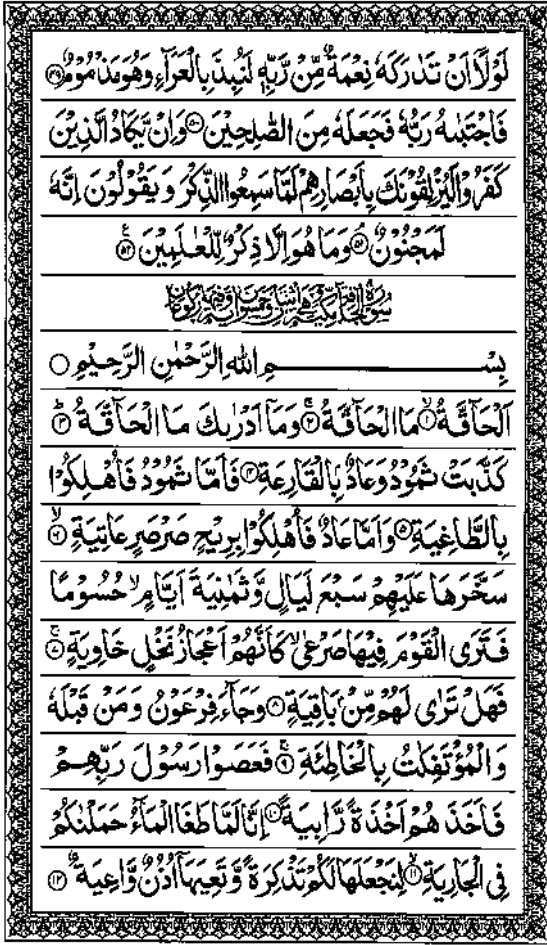 لَوْلَاۤ اَنْ تَدٰرَكَهٗ نِعْمَةٌ مِّنْ رَّبِّهٖ لَنُبِذَ بِالْعَرَآءِ وَهُوَ مَذْمُوْمٌ ﴿۴۹﴾
فَاجْتَبٰىهُ رَبُّهٗ فَجَعَلَهٗ مِنَ الصّٰلِحِيْنَ ﴿۵۰﴾ وَاِنْ يَّكَادُ الَّذِيْنَ
كَفَرُوْا لَيُزْلِقُوْنَكَ بِاَبْصَارِهِمْ لَمَّا سَمِعُوا الذِّكْرَ وَيَقُوْلُوْنَ اِنَّهٗ
لَمَجْنُوْنٌ ﴿۵۱﴾ وَمَا هُوَ اِلَّا ذِكْرٌ لِّلْعٰلَمِيْنَ ﴿۵۲﴾
سُوْرَةُ الْحَآقَّةِ مَكِّيَّةٌ وَّهِيَ اثْنَتَانِ وَخَمْسُوْنَ اٰيَةً وَّفِيْهَا رُكُوْعَانِ
بِسْمِ اللهِ الرَّحْمٰنِ الرَّحِيْمِ
اَلْحَآقَّةُ ﴿۱﴾ مَا الْحَآقَّةُ ﴿۲﴾ وَمَاۤ اَدْرٰىكَ مَا الْحَآقَّةُ ﴿۳﴾
كَذَّبَتْ ثَمُوْدُ وَعَادٌۢ بِالْقَارِعَةِ ﴿۴﴾ فَاَمَّا ثَمُوْدُ فَاُهْلِكُوْا
بِالطَّاغِيَةِ ﴿۵﴾ وَاَمَّا عَادٌ فَاُهْلِكُوْا بِرِيْحٍ صَرْصَرٍ عَاتِيَةٍ ﴿۶﴾
سَخَّرَهَا عَلَيْهِمْ سَبْعَ لَيَالٍ وَّثَمٰنِيَةَ اَيَّامٍ ۙ حُسُوْمًا
فَتَرَى الْقَوْمَ فِيْهَا صَرْعٰى ۙ كَاَنَّهُمْ اَعْجَازُ نَخْلٍ خَاوِيَةٍ ﴿۷﴾
فَهَلْ تَرٰى لَهُمْ مِّنْۢ بَاقِيَةٍ ﴿۸﴾ وَجَآءَ فِرْعَوْنُ وَمَنْ قَبْلَهٗ
وَالْمُؤْتَفِكٰتُ بِالْخَاطِئَةِ ﴿۹﴾ فَعَصَوْا رَسُوْلَ رَبِّهِمْ
فَاَخَذَهُمْ اَخْذَةً رَّابِيَةً ﴿۱۰﴾ اِنَّا لَمَّا طَغَا الْمَآءُ حَمَلْنٰكُمْ
فِى الْجَارِيَةِ ﴿۱۱﴾ لِنَجْعَلَهَا لَكُمْ تَذْكِرَةً وَّتَعِيَهَاۤ اُذُنٌ وَّاعِيَةٌ ﴿۱۲﴾